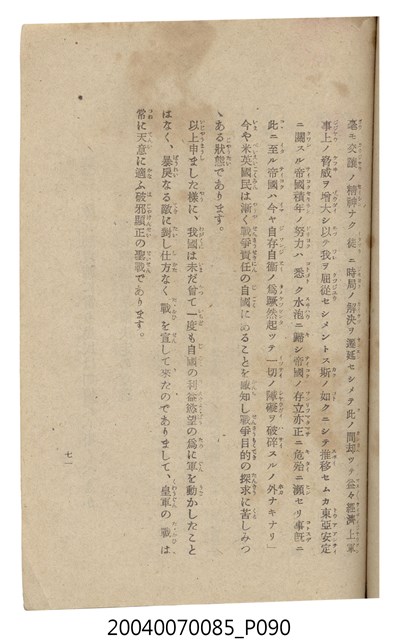 毫モ交讓ノ精神ナク徒ニ時局ノ解決ヲ遷延セシメテ此ノ間却ツテ益々經濟上軍
事上ノ脅威ヲ增大シ以テ我ヲ屈從セシメントス斯ノ如クニシテ推移セムカ東亞安定
ニ關スル帝國積年ノ努力ハ悉ク水泡ニ歸シ帝國ノ存立亦正ニ危殆ニ瀕セリ事旣ニ
此ニ至ル帝國ハ今ヤ自存自衞ノ爲蹶然起ツテ一切ノ障礙ヲ破碎スルノ外ナキナリ」
今や米英國民は漸く戰爭責任の自國にあることを感知し戰爭目的の探求に苦しみつ
ゝある狀態であります。
以上申ました樣に、我國は未だ曾て一度も自國の利益慾望の爲に軍を動かしたこと
はなく、暴戾なる敵に對し仕方なく戰を宣して來たのでありまして、皇軍の戰は
常に天意に適ふ破邪顯正の聖戰であります。
七一
20040070085_P090